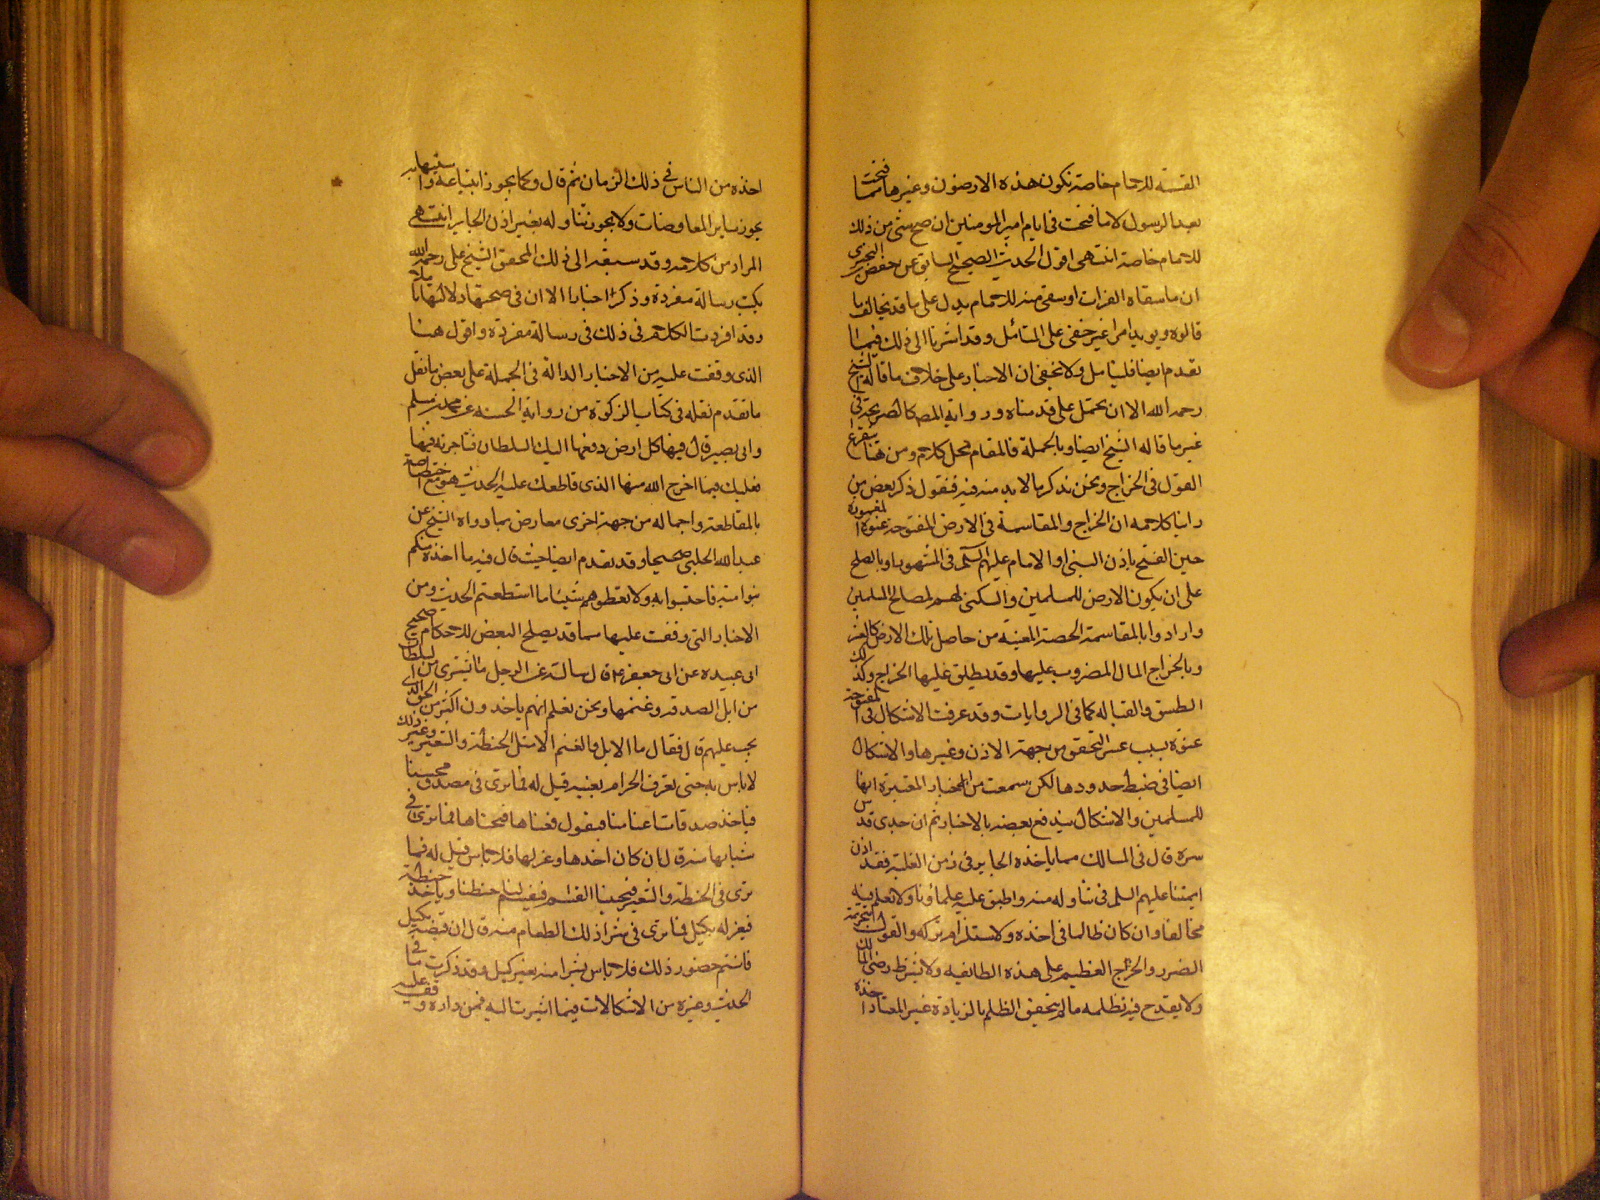 القسمة للامام خاصة تكون هذه الارضون وغيرها مما فتحت
بعد الرسول الا ما فتحت في ايام امير المومنين ان صح شئ من ذلك
للامام خاصة انتهى اقول الحديث الصحيح السابق عن حفص بن البختري
ان ما سقاه الفرات او سقى منه للامام يدل على ما قد يخالف ما
قالوه ويؤيد امرا غير خفي على المتأمل وقد اشرنا الى ذلك فيما
تقدم ايضا فليتأمل ولا يخفى ان الاخبار على خلاف ما قاله الشيخ
رحمه الله الا ان يحتمل على قدمناه ورواية المصكا لصريحة في
غير ما قاله الشيخ ايضا وبالجملة فالمقام محل كلام ومن هنا يتفرع
القول في الخراج ونحن نذكر ما لابد منه فيه فنقول ذكر بعض من
راينا كلامه ان الخراج والمقاسمة في الارض المفتوحة عنوة
حين الفتح باذن النبي او الامام عليهم السلم في المشهور او بالصلح
على ان يكون الارض للمسلمين والسكنى لهم لمصالح المسلمين
وارادوا بالمقاسمة الحصة المعينة من حاصل تلك الارض كالعشر
وبالخراج المال المضروب عليها وقد يطلق عليها الخراج وكذلك
الطسق والقبالة كما في الروايات وقد عرفت الاشكال في المفتوحة
عنوة بسبب عسر التحقق من جهة الاذن وغيرها والاشكال
ايضا في ضبط حدودها لكن سمعت من الاخبار المعتبرة انها
للمسلمين والاشكال يندفع بعضه بالاخبار ثم ان جدي قدس
سره قال في المسالك مما ياخذه الجاير في زمن الغلبة فقد اذن
ايمتنا عليهم السلم في تناوله منه واطبق عليه علماؤنا ولا نعلم فيه
مخالفا وان كان ظالما في اخذه ولاستلزام تركه والقول بتحريمه
الضرر والحرج العظيم على هذه الطائفة ولا يشترط رضى المالك
ولا يقدح فيه تظلمه ما لم يتحقق الظلم بالزيادة عن المعتاد اخذه
اخذه من الناس في ذلك الزمان ثم قال وكما يجوز ابتياعه واستيهابه
يجوز ساير المعاوضات ولا يجوز تناوله بغير اذن الجاير انتهى
المراد من كلامه وقد سبقه الى ذلك المحقق الشيخ على رحمه الله
بكتب رسالة مفردة وذكر اخبارا الا ان في صحتها ودلالتها تاملا
وقد افردت الكلام في ذلك في رسالة مفردة واقول هنا
الذي وقفت عليه من الاخبار الدالة في الجملة على بعض ما نقل
ما تقدم نقله في كتاب الزكوة من رواية الحسنة عن محمد بن مسلم
وابي بصير قال فيها كل ارض دفعها اليك السلطان فتاجرته فيها
فعليك فيما اخرج الله منها الذي قاطعك عليه الحديث وهو مع اختصاصه
بالمقاطعة واجماله من جهة اخرى معارض بما رواه الشيخ عن
عبد الله الحلبي صحيحا وقد تقدم ايضا حيث قال فيه ما اخذه منكم
بنو امية فاحتسبوا به ولا تعطوهم شيئا ما استطعتم الحديث ومن
الاخبار التي وقفت عليها مما قد يصلح البعض للاحكام صحيح
ابي عبيدة عن ابي جعفر ع قال سالته عن الرجل منا يشترى من السلطان
من ابل الصدقة وغنمها ونحن نعلم انهم ياخذون اكثر من الحق الذي
يجب عليهم قال فقال ما الابل والغنم الا مثل الحنطة والشعير وغير ذلك
لا باس به حتى يعرف الحرام بعينه قيل له فما ترى في مصدق يجيئنا
فياخذ صدقات اغنامنا فيقول فبعناها فبعناها فما ترى في
شرائها منه قال ان كان اخذها وعزلها فلا باس قيل له فما
ترى في الحنطة والشعير فيجيئنا القاسم فيقسم لنا حنطنا وياخذ حنطه
فيعزله بكيل فما ترى في شراء ذلك الطعام منه قال ان قبضه بكيل
فانتم حضور ذلك فلا باس بشرا منه بغير كيل وقد ذكرت ما في
الحديث وغيره من الاشكالات فيما اشرت اليه فمن داره وقف عليه